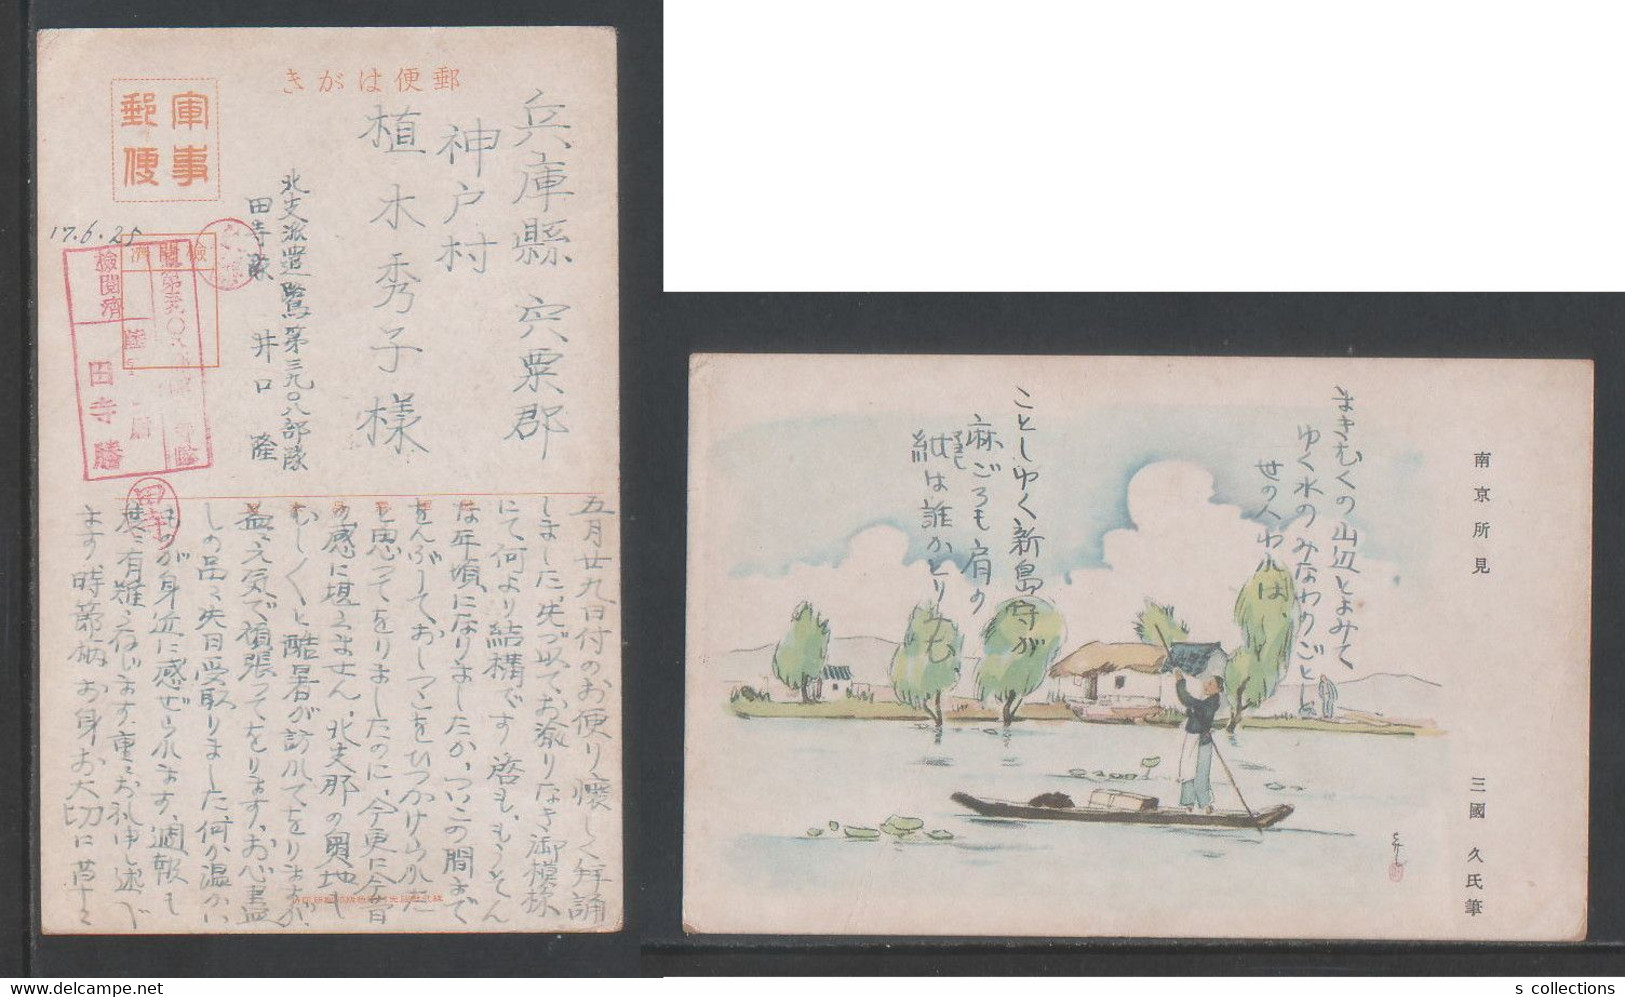 郵便はがき
軍事
郵便
兵庫縣宍粟郡
神戸村
植木秀子様
北支派遣鷺第三九〇八部隊
田寺隊 井口隆
17.6.25
檢閲濟
檢閲濟
田寺勝
田寺
五月廿九日付のお便り懐しく拝誦
しました、先づ以てお渝りなき御模様
にて何より結構です 啓も、もうそん
な年頃になりましたか、ついこの間まで
をんぶして、おしっこをひっかけられた
と思ってをりましたのに、今更に今昔
の感に堪えません、北支那の奥地も
むしむしと酷暑が訪れてをりますが
益々元気で頑張ってをります、お心盡
しの品々 先日受取りました、何か温かい
ものが身近に感ぜられます、週報も
度々有難く存じます、重々お礼申し述べ
ます 時節柄お身お大切に 草々
まきむくの山辺とよみて
ゆく水のみなわのごとし
世の人われは、
ことしゆく新島守が
麻ごろも肩の
紕は誰かとりみむ
南京所見
三國久氏筆
s collections